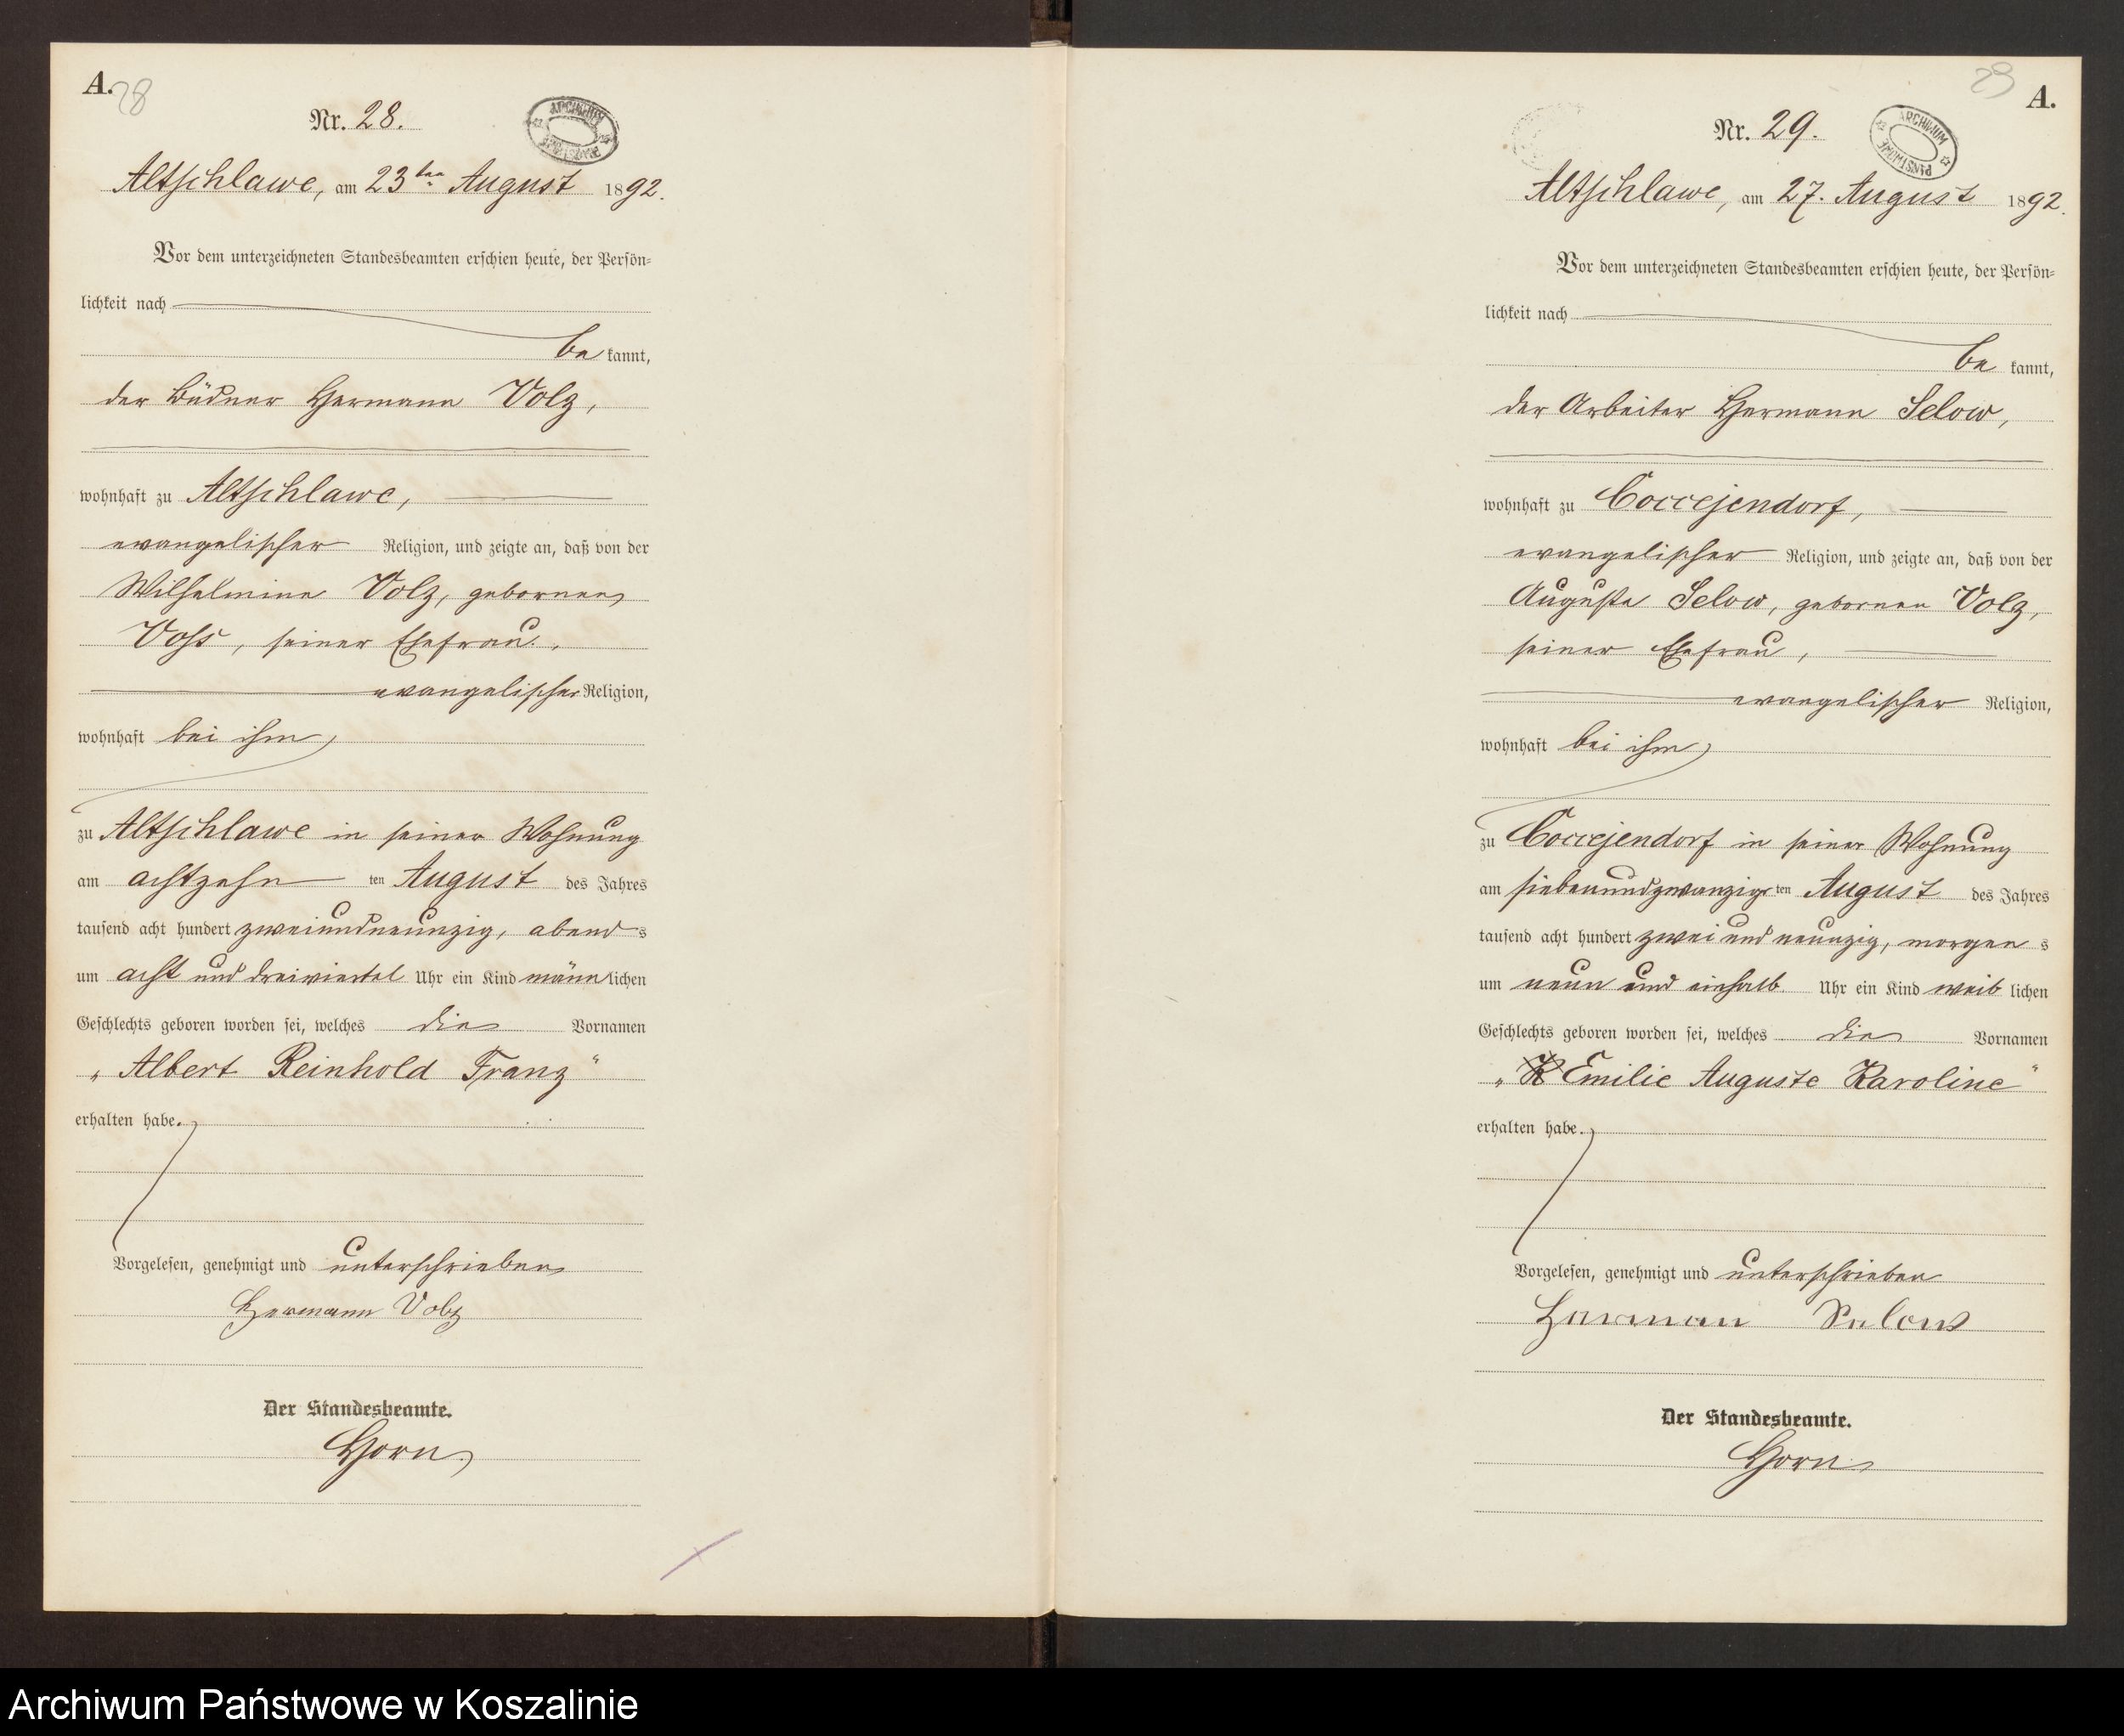 A.
28
Nr. 28.
ARCHIWUM PAŃSTWOWE
Altschlawe, am 23ten August 1892.
Vor dem unterzeichneten Standesbeamten erschien heute, der Persön=
lichkeit nach
be kannt,
der Büdner Hermann Volz,
wohnhaft zu Altschlawe,
evangelischer Religion, und zeigte an, daß von der
Wilhelmine Volz, gebornen
Voss, seiner Ehefrau,
evangelischer Religion,
wohnhaft bei ihm,
zu Altschlawe in seiner Wohnung
am achtzehn ten August des Jahres
tausend acht hundert zweiundneunzig, abend s
um acht und dreiviertel Uhr ein Kind männ lichen
Geschlechts geboren worden sei, welches die Vornamen
„Albert Reinhold Franz“
erhalten habe.
Vorgelesen, genehmigt und unterschrieben
Hermann Volz
Der Standesbeamte.
Horn.
29
A.
Nr. 29.
ARCHIWUM PAŃSTWOWE
Altschlawe, am 27. August 1892.
Vor dem unterzeichneten Standesbeamten erschien heute, der Persön=
lichkeit nach
be kannt,
der Arbeiter Hermann Selow,
wohnhaft zu Coccejendorf,
evangelischer Religion, und zeigte an, daß von der
Auguste Selow, gebornen Volz,
seiner Ehefrau,
evangelischer Religion,
wohnhaft bei ihm,
zu Coccejendorf in seiner Wohnung
am siebenundzwanzig ten August des Jahres
tausend acht hundert zwei und neunzig, morgen s
um neun und einhalb Uhr ein Kind weib lichen
Geschlechts geboren worden sei, welches die Vornamen
„Emilie Auguste Karoline“
erhalten habe.
Vorgelesen, genehmigt und unterschrieben
Herman Selow
Der Standesbeamte.
Horn
Archiwum Państwowe w Koszalinie